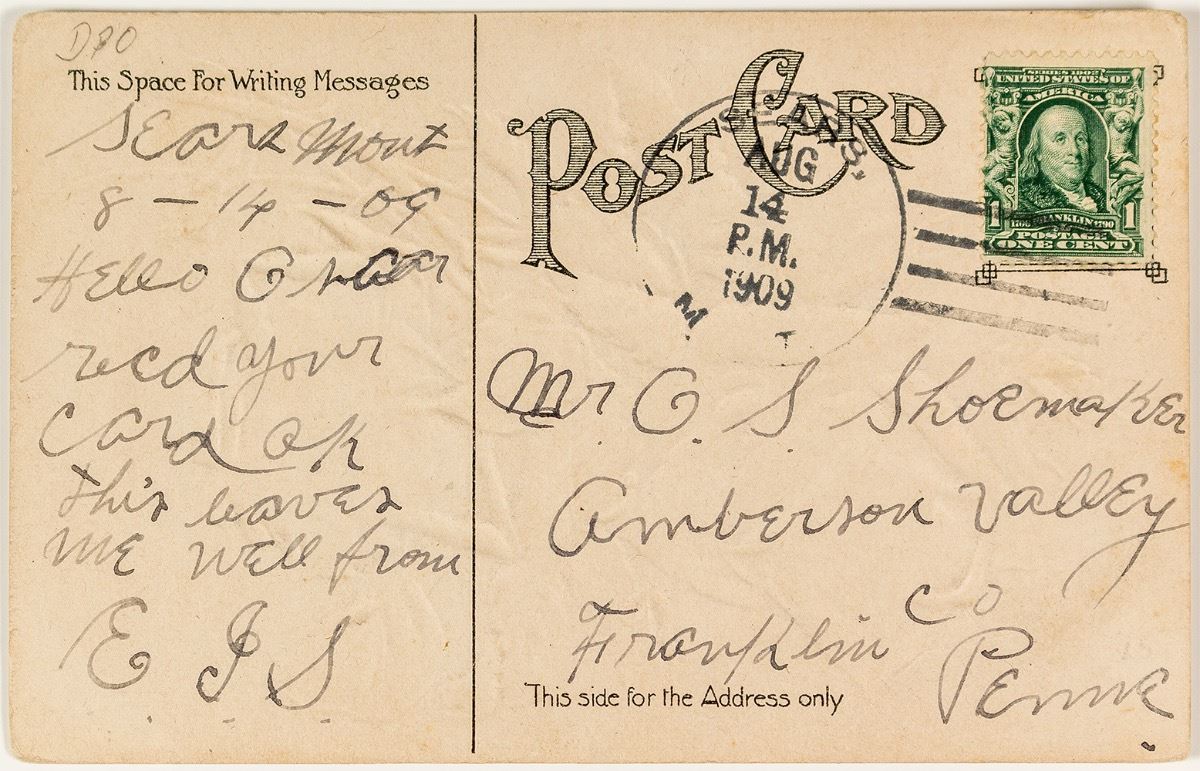 DPO
This Space For Writing Messages
Sears Mont
8 - 14 - 09
Hello Oscar
recd your
card ok
this leaves
me well from
E. I. S.
POST CARD
SEARS.
AUG
14
P.M.
1909
M T
SERIES 1902
UNITED STATES OF
AMERICA
1706 FRANKLIN 1790
1 1
POSTAGE
ONE CENT
Mr. O. S Shoemaker
Amberson Valley
Franklin Co
Penne
This side for the Address only